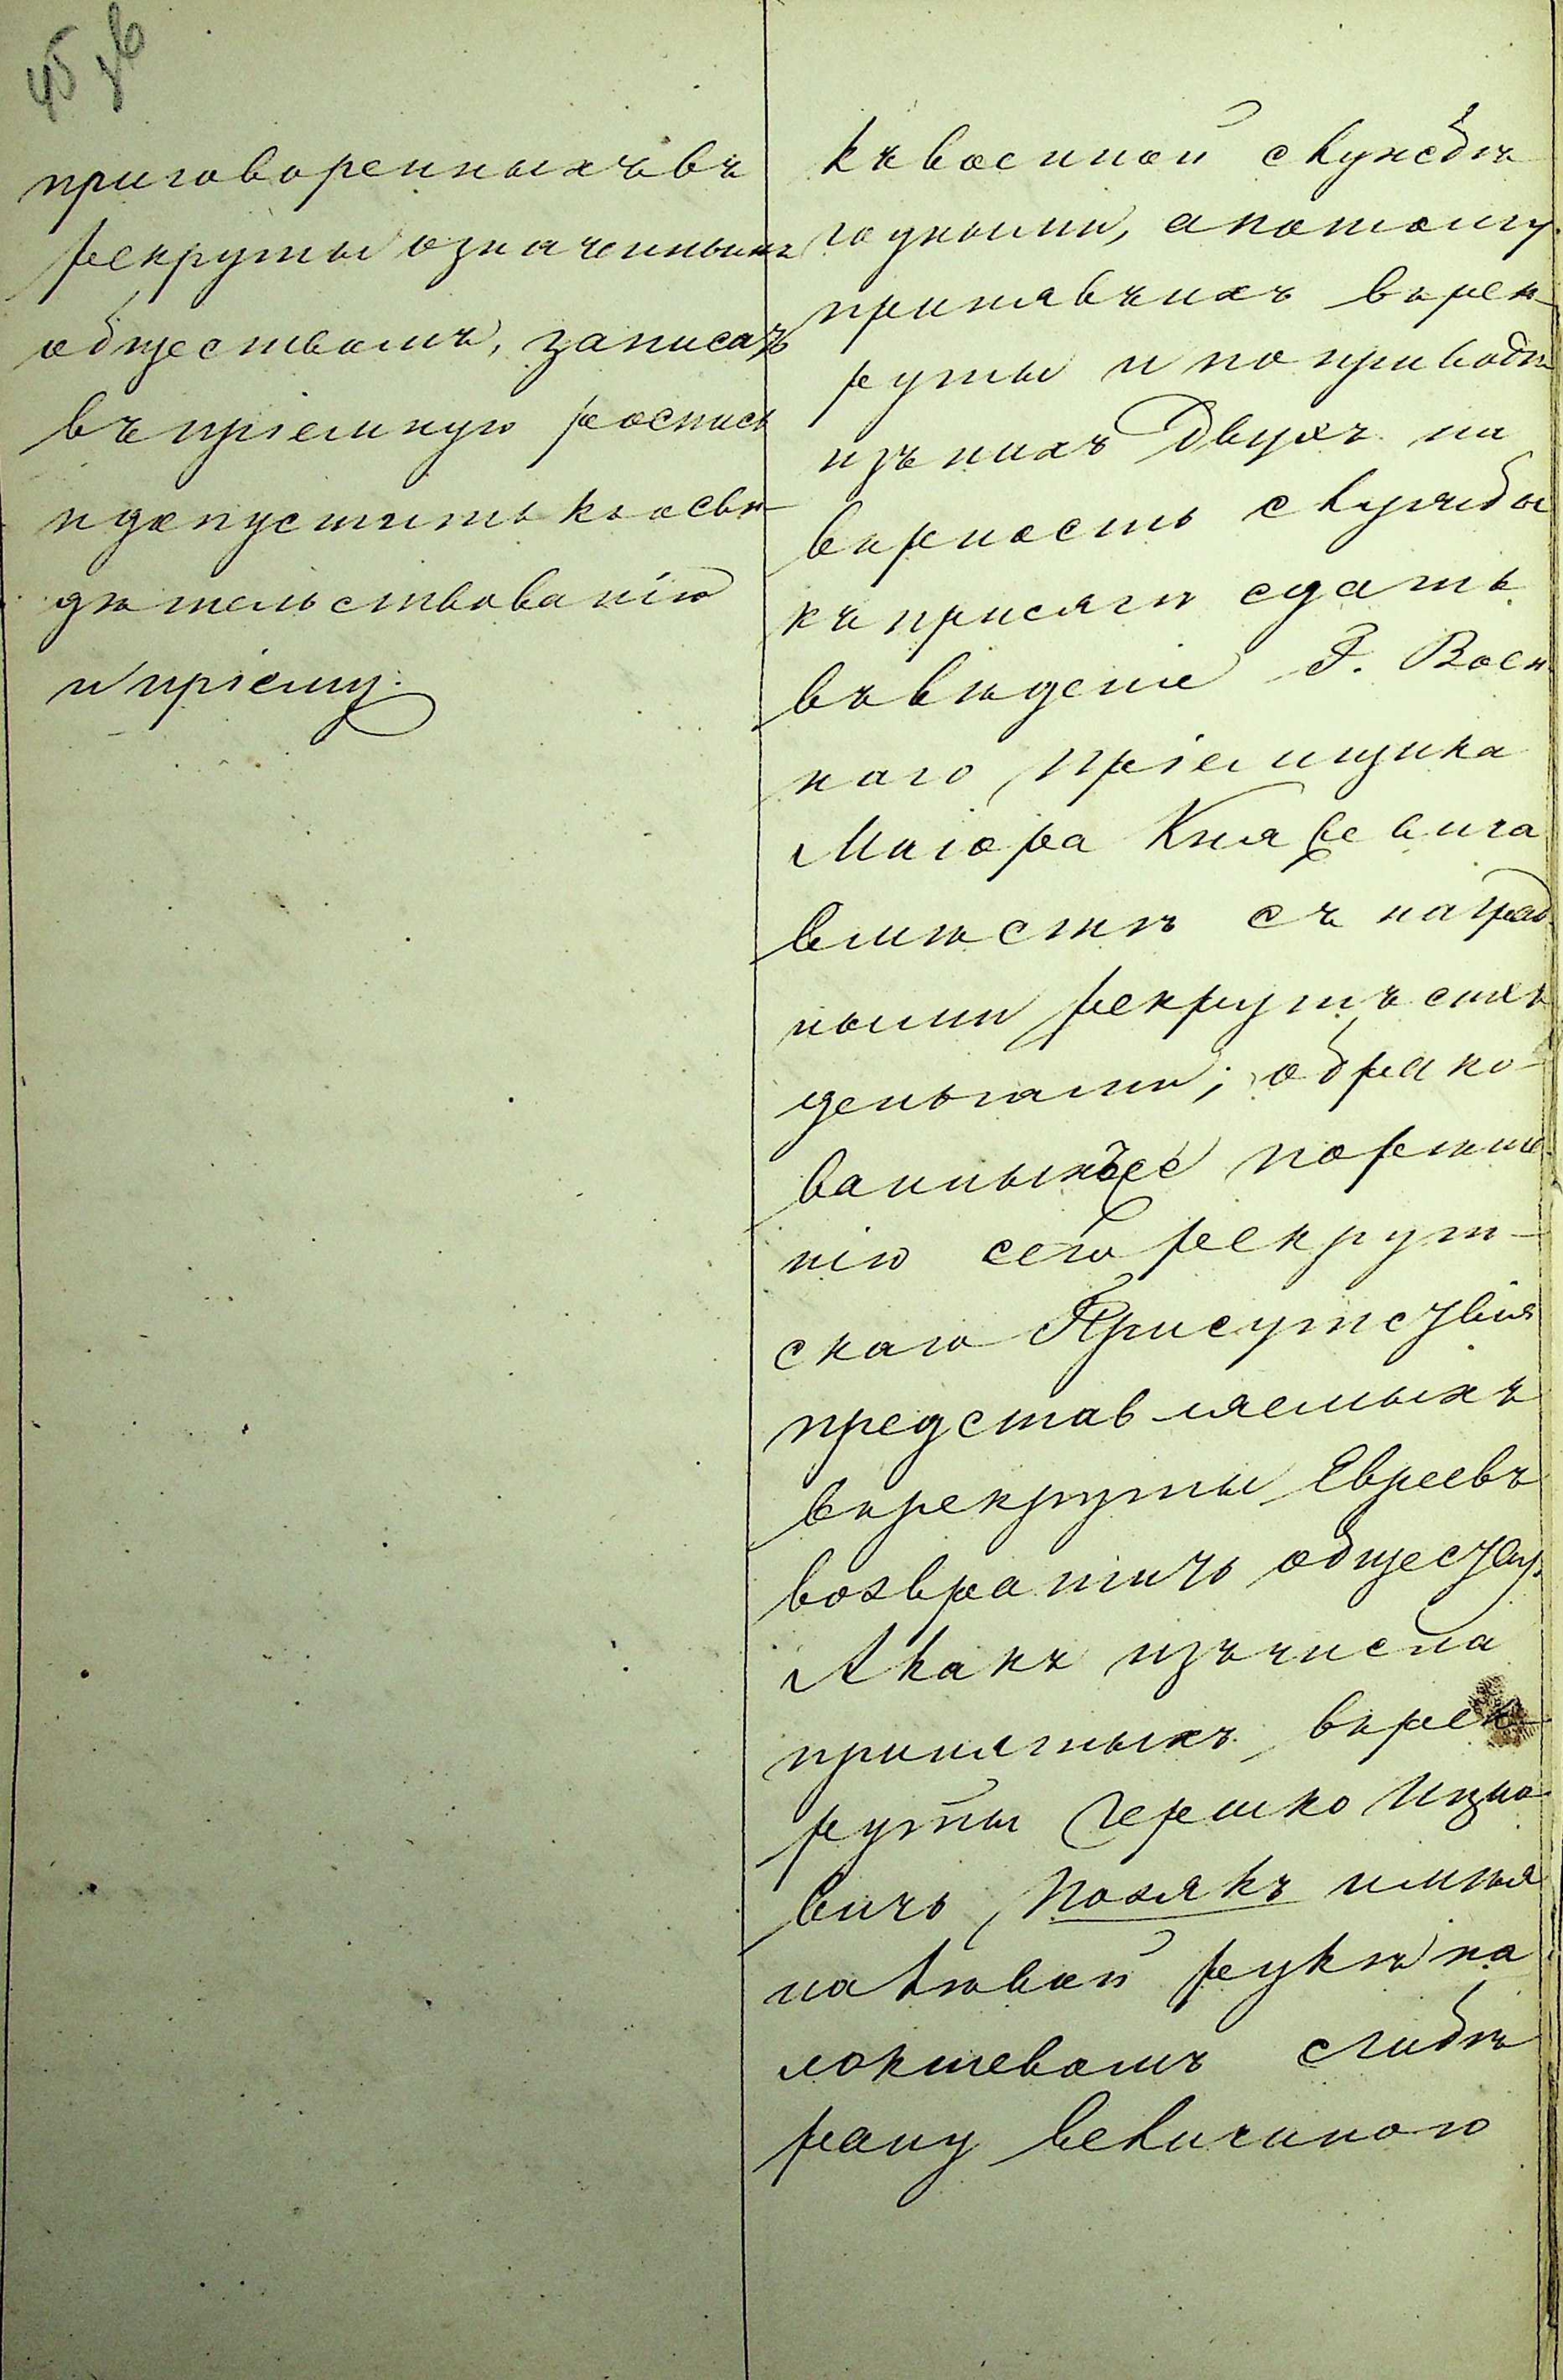 45 об
приговоренныхъ въ
рекруты означеннымъ
обществомъ, записать
въ пріемную роспись
и допустить къ осви-
дѣтельствованію
и пріему.
къ военной службѣ
годными, а потому
принявъ ихъ въ рек-
руты и по приводѣ
изъ нихъ двухъ на
вѣрность службы
къ присяги сдать
въ вѣденіе Г. Воен
наго пріемщика
Маіора Князевича
вмѣстѣ съ
ными рекрутъ сихъ
деньгами; обрако-
ванныхъ же по рѣше
нію сего рекрут-
скаго Присутствія
представляемыхъ
въ рекруты Евреевъ
возвратить обществу.
А какъ изъ числа
принятыхъ въ рек-
руты Гершко Ицко
вичъ Полякъ имѣя
на лѣвой рукѣ на
локтевомъ сгибѣ
рану величиною